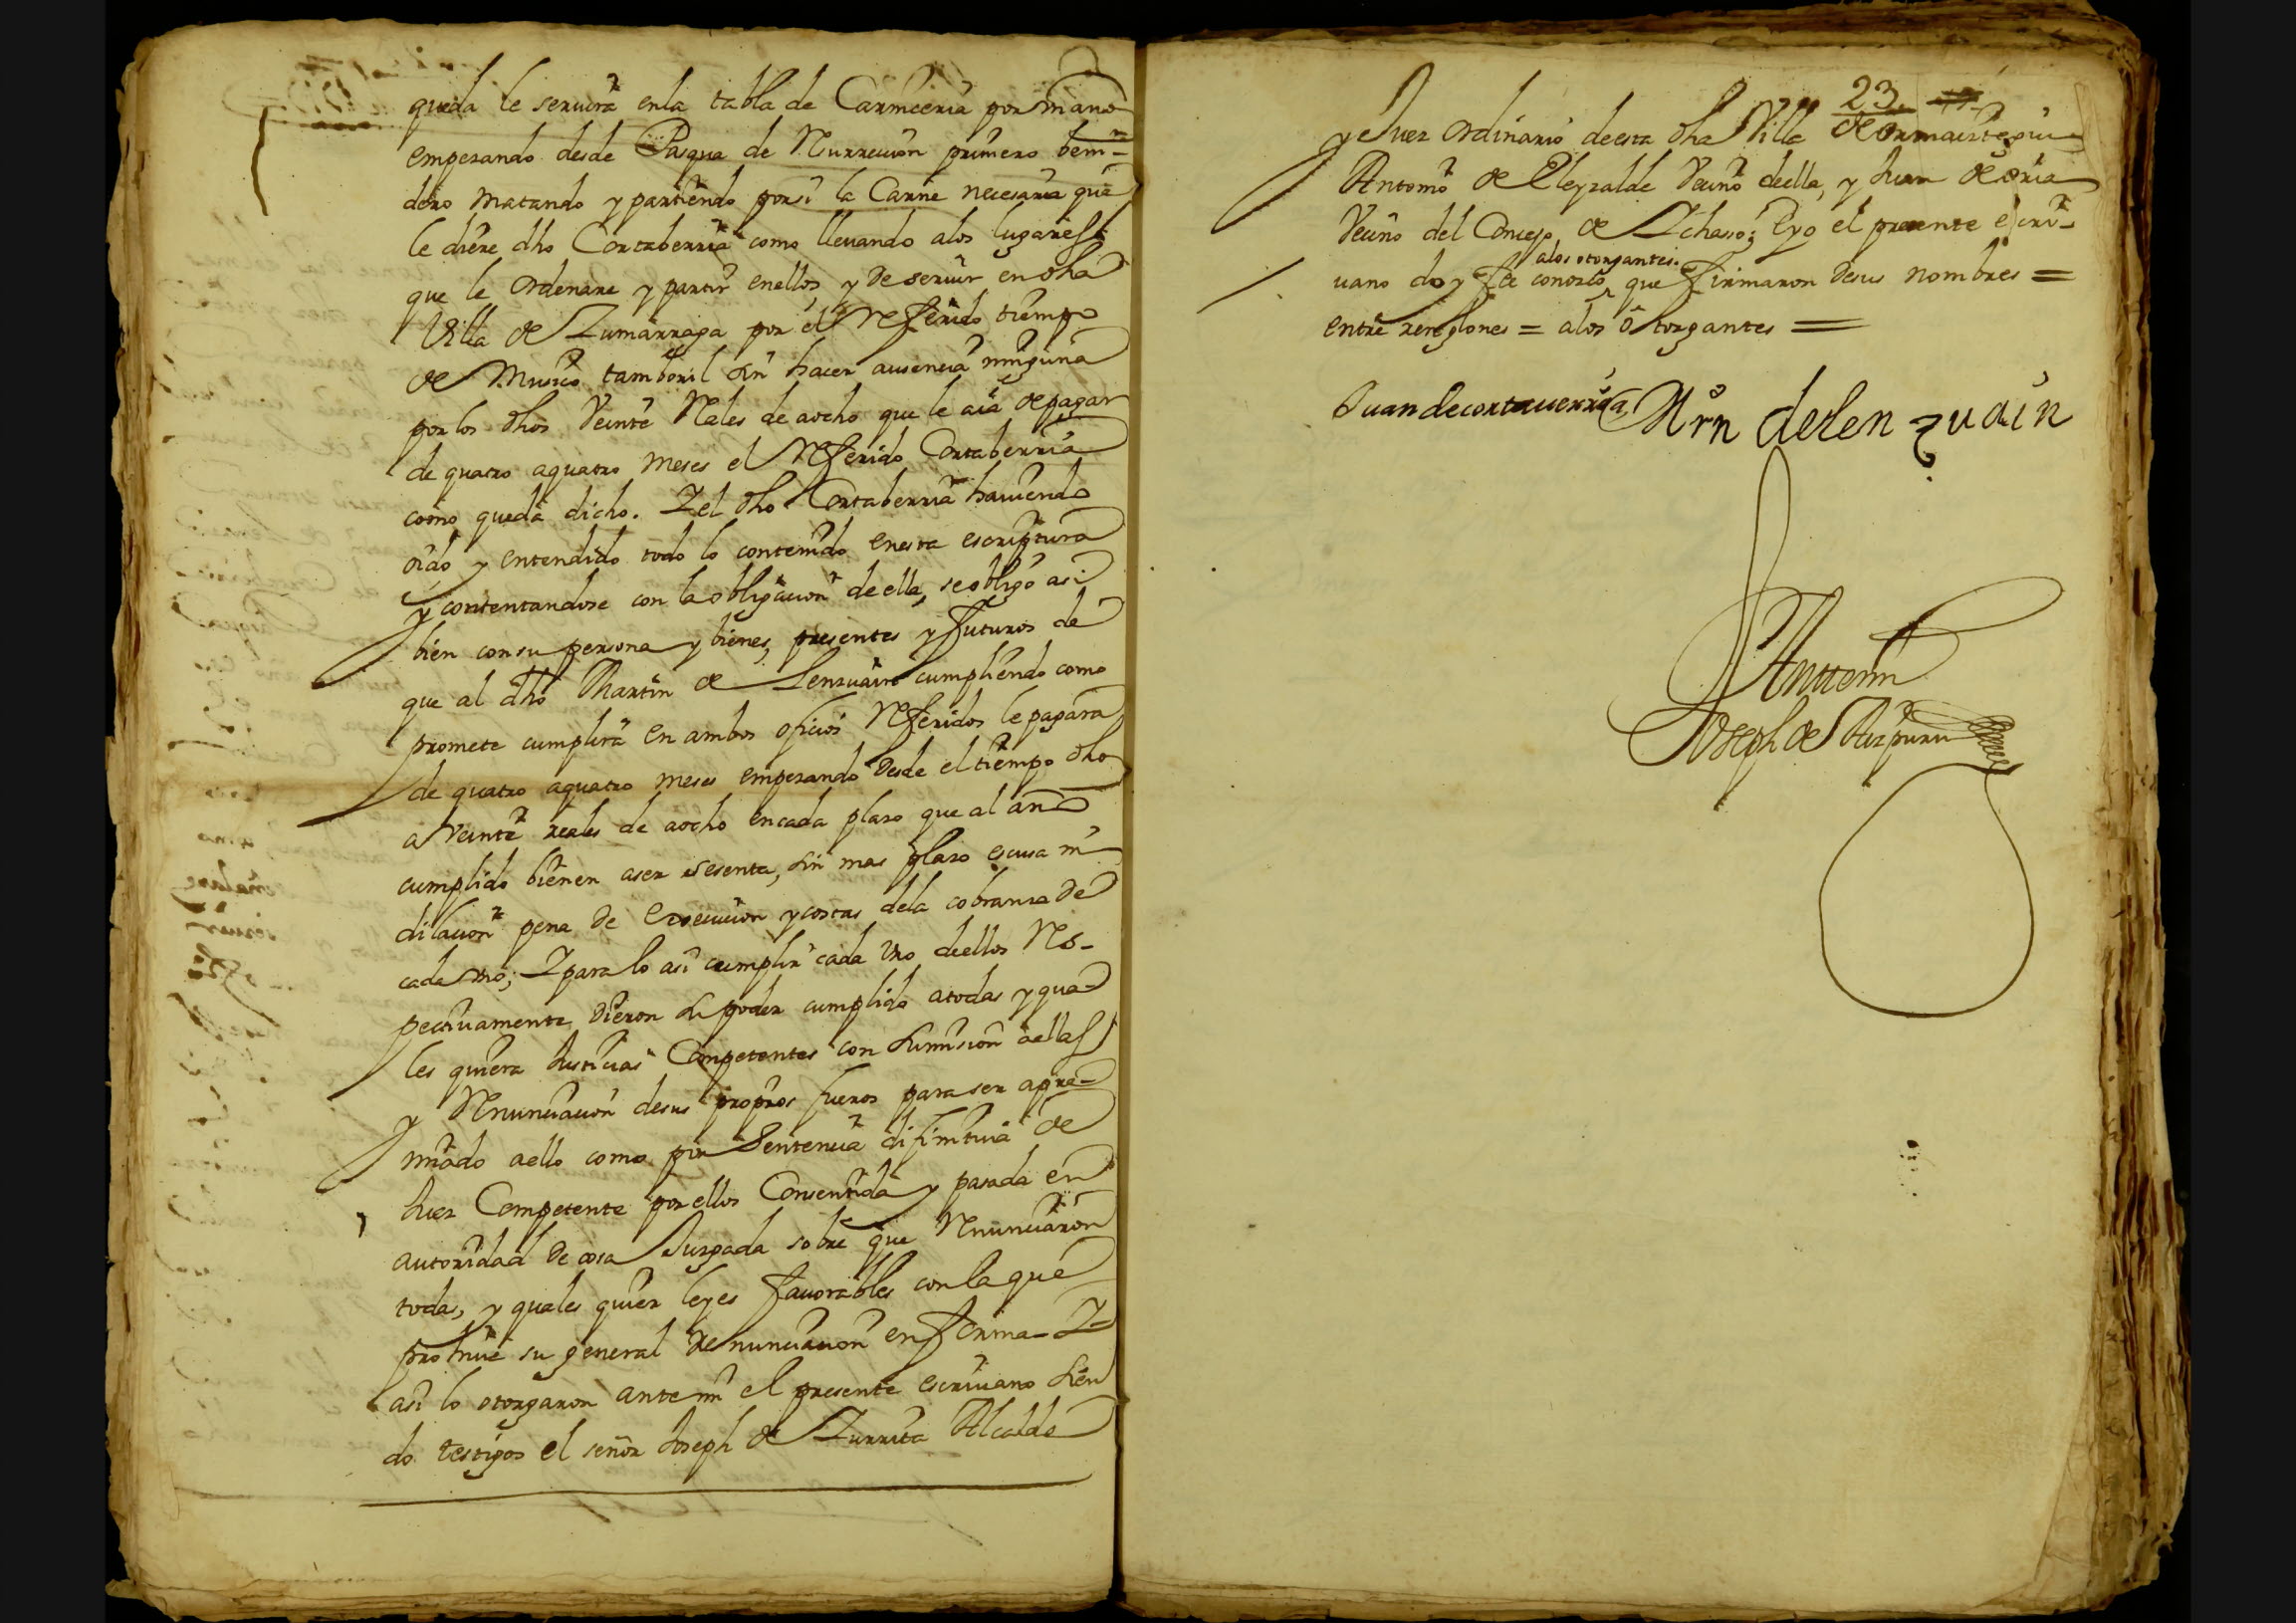 queda le seruira enla tabla de Carniceria por mano
empezando desde Pasqua de Rurrecion primero beni-
dero matando y partiendo porsi la Carne necesaria que
le diere dho Cortaberria como lleuando alos lugares
que le ordenare y partir enellos, y de seruir en dha
Villa de Zumarraga por el Referido tiempo
de Musico tamboril sin hacer ausencia ninguna
por los dhos Veinte Rales de aocho que le aia de pagar
de quatro aquatro meses el Referido Cortaberria
como queda dicho. Y el dho Cortaberria hauiendo
oido y entendido todo lo contenido enesta escriptura
y contentandose con la obligacion de ella, se obligo asi
bien con su persona y bienes, presentes y futuros de
que al dho Martin de Lenzuain cumpliendo como
promete cumplira en ambos oficios Referidos le pagara
de quatro aquatro meses empezando desde el tiempo dho
a Veinte reales de aocho encada plazo que al año
cumplido bienen aser sesenta, sin mas plazo escusa ni
dilacion pena de execucion y costas dela cobranza de
cada vno; Y para lo asi cumplir cada vno deellos Res-
pectiuamente dieron su poder cumplido atodas y qua-
les quiera Justicias Competentes con sumision aellas
y Renunciacion desus propios fueros para ser apre-
miado aello como por Sentencia difinitiua de
Juez Competente por ellos Consentida y pasada en
autoridad de cosa Juzgada sobre que Renunciaron
todas, y quales quier leyes fauorables con la que
prohiue su general Renunciacion en forma- Y
asi lo otorgaron ante mi el presente escriuano sien
do testigos el señor Joseph de Zurrita Alcalde
23
y Juez ordinario deesta dha Villa de Ormaiztegui
Antonio de Eleyzalde Vecino deella, y Juan de oria
Vecino del Concejo de Ichaso; Eyo el presente escri-
alos otorgantes.
uano doy fee conozco que firmaron desus nombres =
entre renglones = alos otorgantes =
Juan de cortauerria Mrn de len zuain
Ante mi
Joseph de Aizpuru